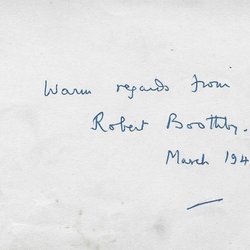 Warm regards from
Robert Boothby.
March 194